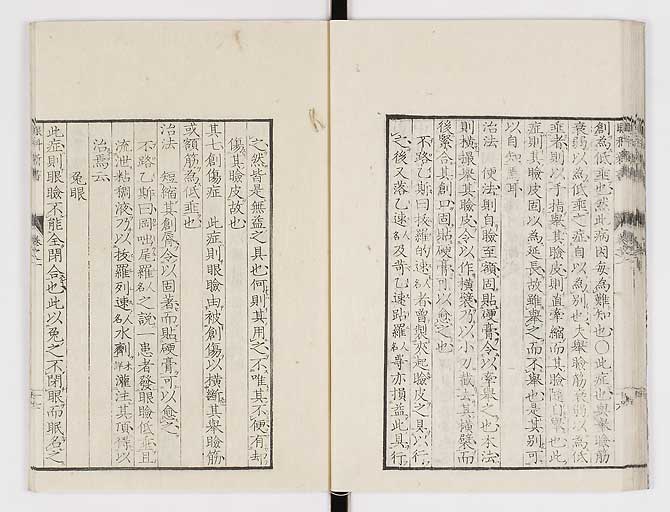 創為低垂也然此病因每為難知也○此症也與舉瞼筋
衰弱以為低垂之症自以為別也夫舉瞼筋衰弱以為低
垂者則以手指舉其瞼皮則直牽縮而其瞼隨舉也此
症則其瞼皮固以為延長故雖舉之而不舉也是其別可
以自知耳
治法 便法則自瞼至額固貼硬膏令以牽舉之也本法
則橫撮舉其瞼皮令以作橫襞乃以小刀截去其橫襞而
後緊合其創口固貼硬膏可以愈之也
不路乙斯曰拔羅的速名人者曾製夾起瞼皮之具以行
之後又落乙速名人及苛乙速趾羅名人等亦損益此具行
之然皆是無益之具也何則其用之不唯其不便有却
傷其瞼皮故也
其七創傷症 此症則眼瞼由被創傷以橫斷其舉瞼筋
或額筋為低垂也
治法 短縮其創唇令以固著而貼硬膏可以愈之
不路乙斯曰岡咄尾羅名人之說一患者發眼瞼低垂且
流泄粘稠液乃以拔羅列速名人水劑灌注其頂得以
治焉云
兔眼
此症則眼瞼不能全閉合也此以兔之不閉眼而眠名之
眼科新書